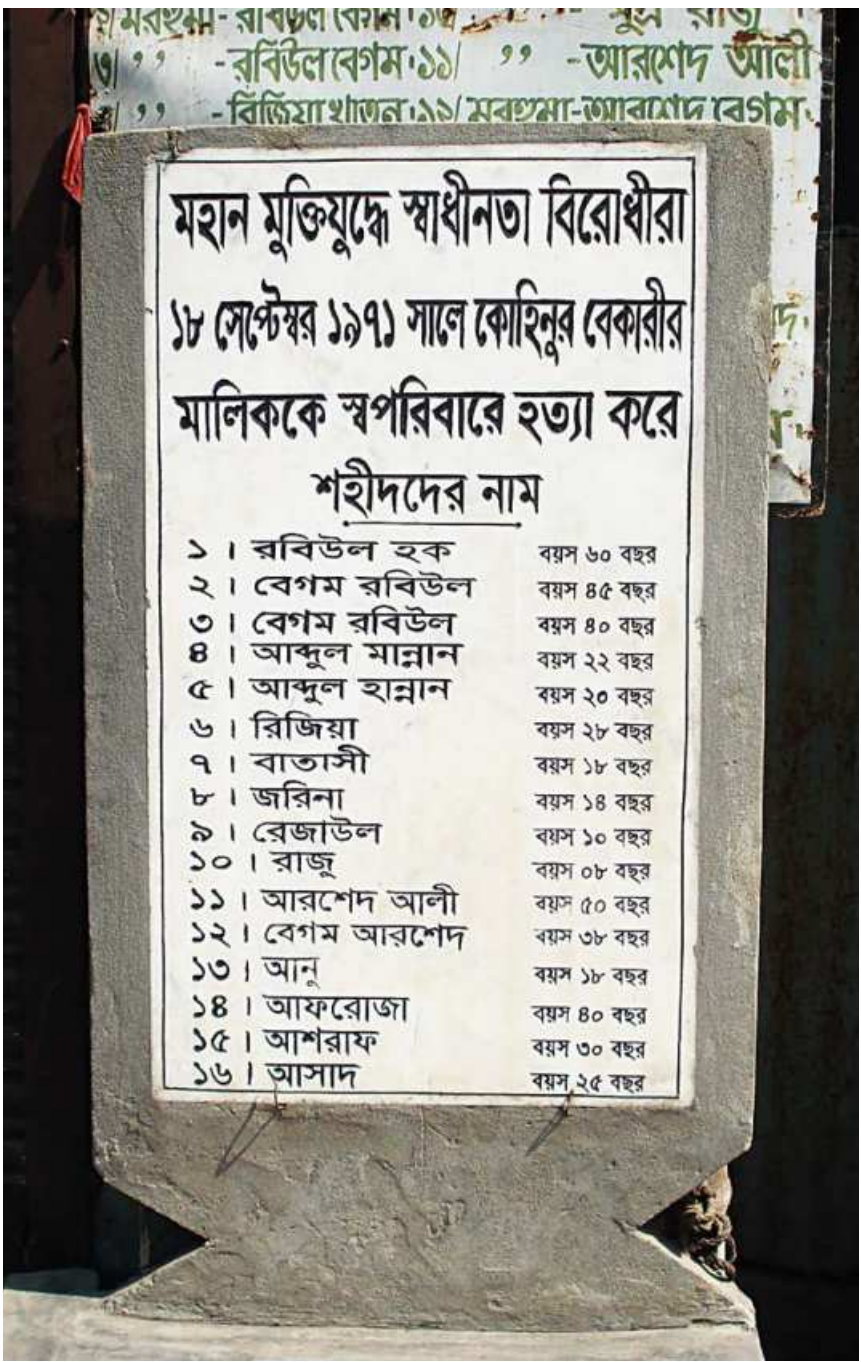 ৩। ,, - রবিউল বেগম। ১১। ,, - আরশেদ আলী
,, - রিজিয়া খাতুন। ১২/ মরহুমা - আরশেদ বেগম
মহান মুক্তিযুদ্ধে স্বাধীনতা বিরোধীরা
১৮ সেপ্টেম্বর ১৯৭১ সালে কোহিনুর বেকারীর
মালিককে স্বপরিবারে হত্যা করে
শহীদদের নাম
১ । রবিউল হক বয়স ৬০ বছর
২ । বেগম রবিউল বয়স ৪৫ বছর
৩ । বেগম রবিউল বয়স ৪০ বছর
৪ । আব্দুল মান্নান বয়স ২২ বছর
৫ । আব্দুল হান্নান বয়স ২০ বছর
৬ । রিজিয়া বয়স ২৮ বছর
৭ । বাতাসী বয়স ১৮ বছর
৮ । জরিনা বয়স ১৪ বছর
৯ । রেজাউল বয়স ১০ বছর
১০ । রাজু বয়স ০৮ বছর
১১ । আরশেদ আলী বয়স ৫০ বছর
১২ । বেগম আরশেদ বয়স ৩৮ বছর
১৩ । আনু বয়স ১৮ বছর
১৪ । আফরোজা বয়স ৪০ বছর
১৫ । আশরাফ বয়স ৩০ বছর
১৬ । আসাদ বয়স ২৫ বছর